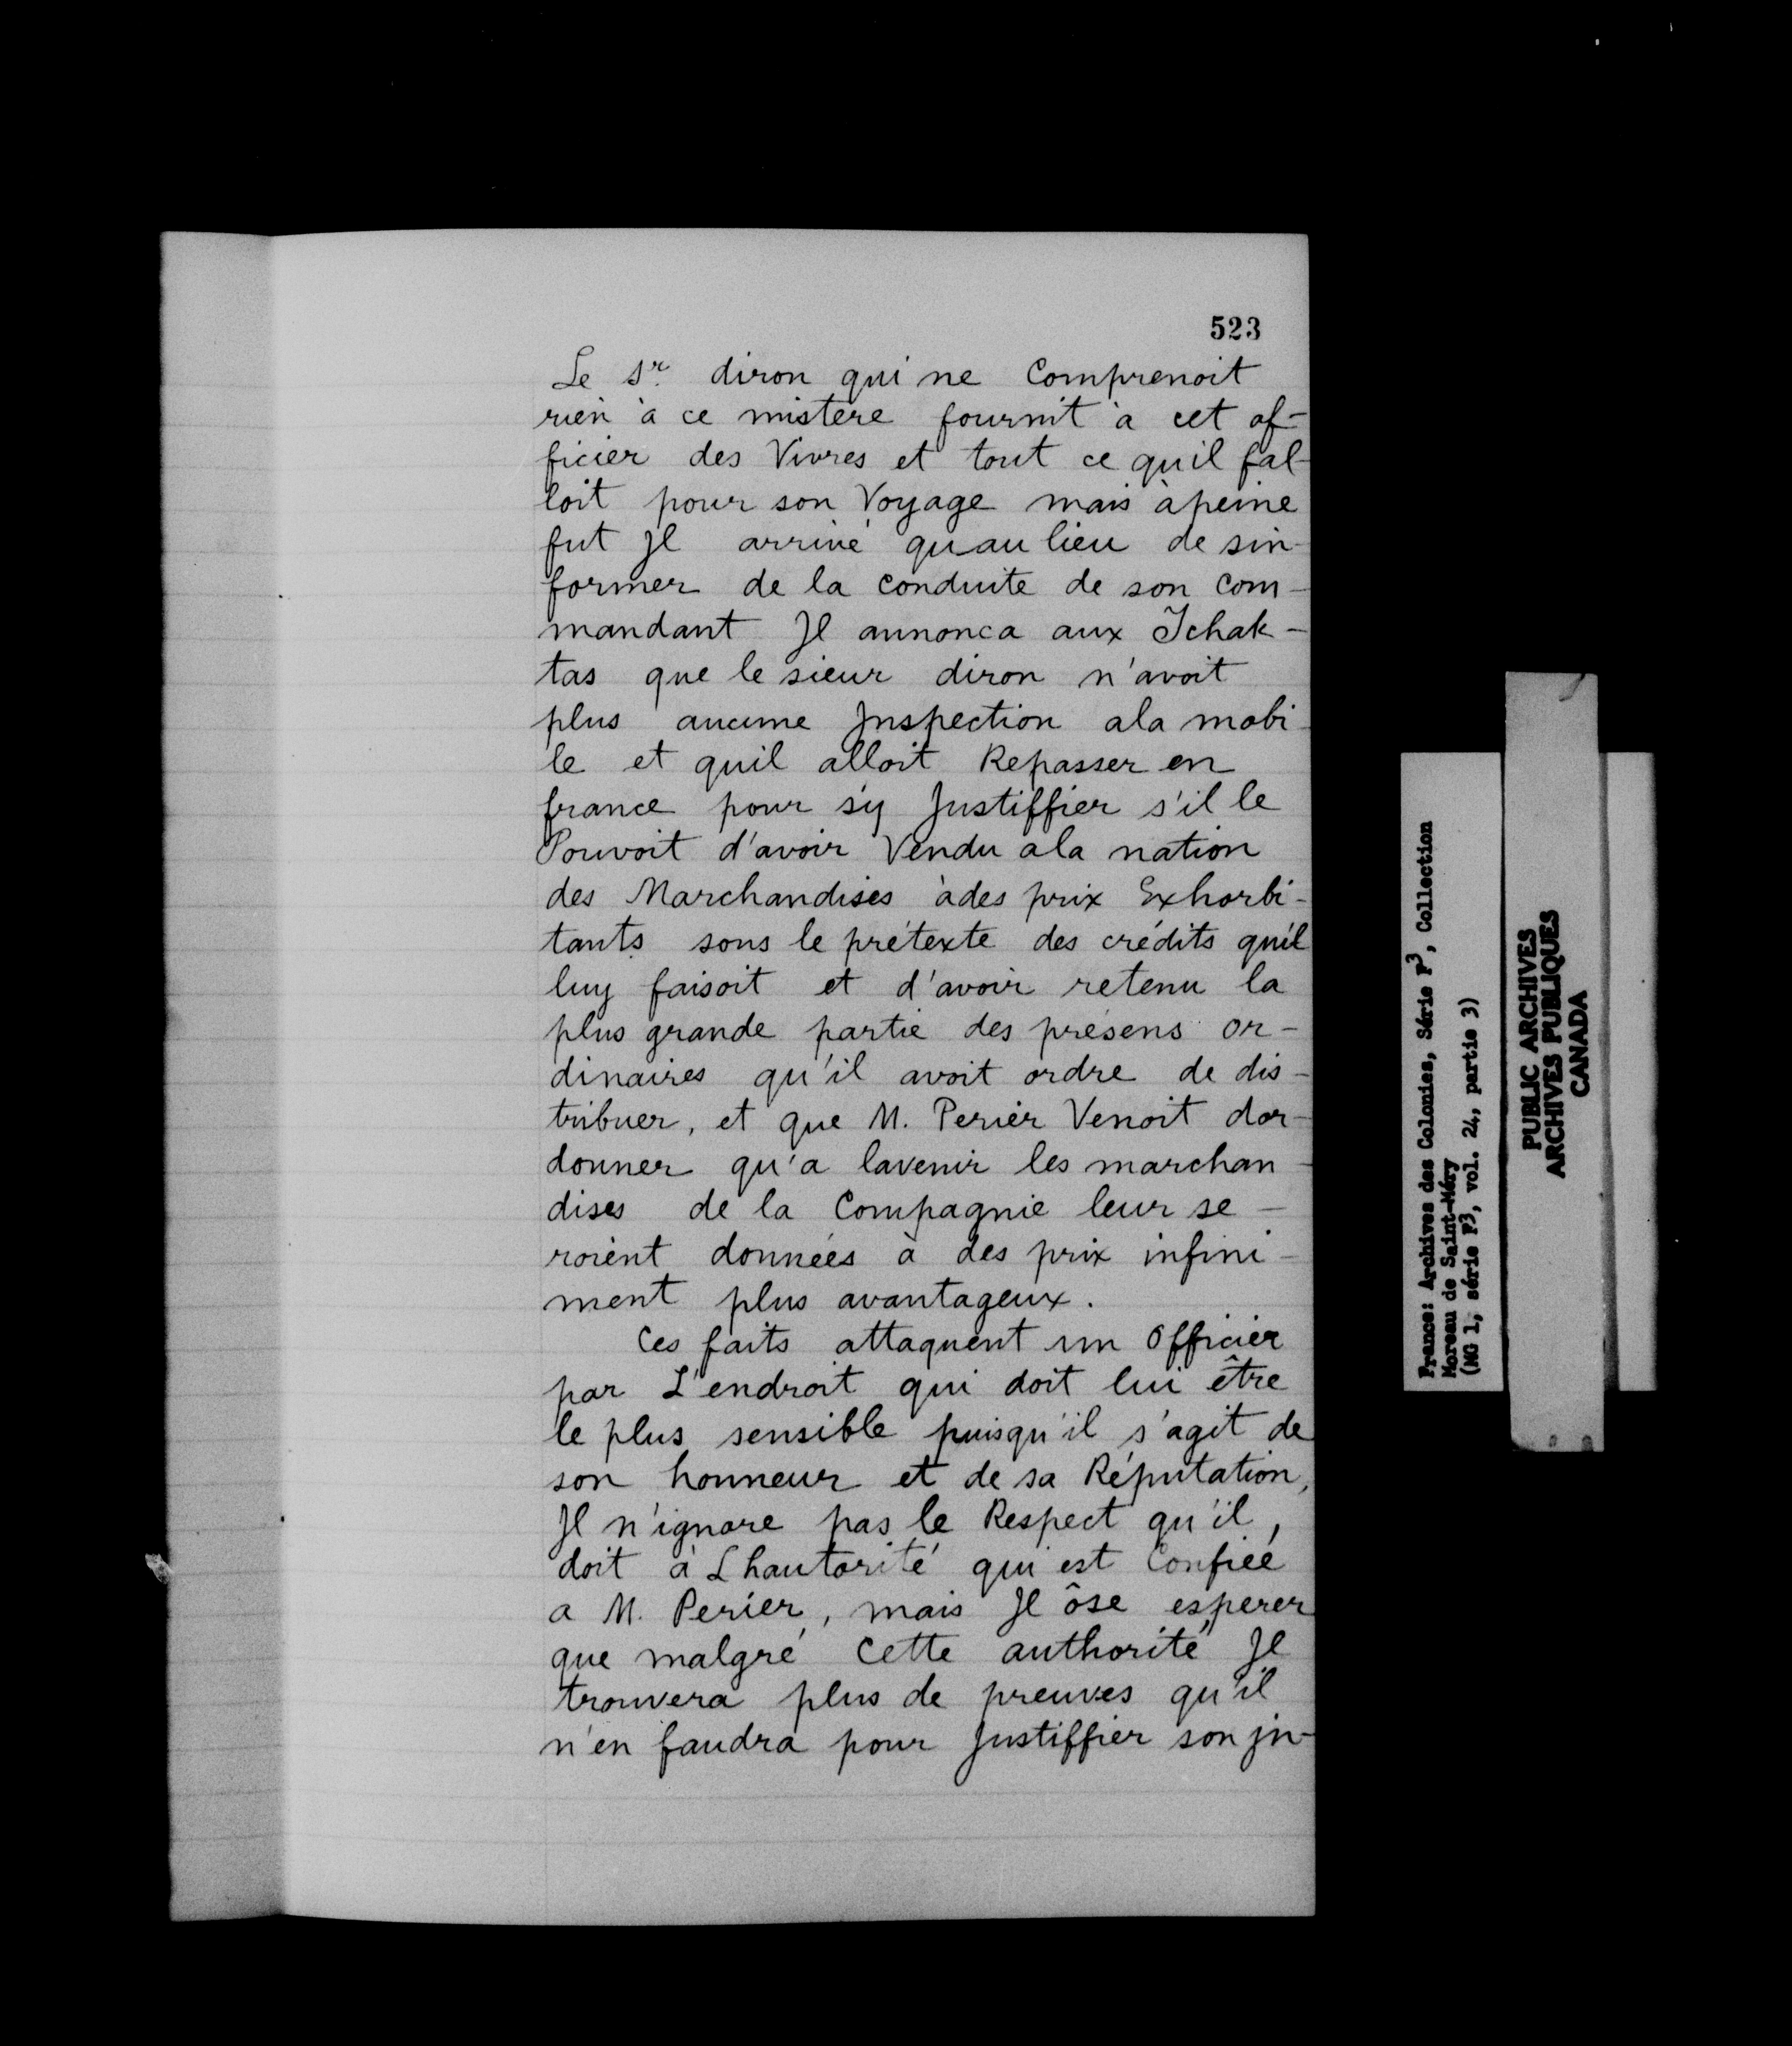 523
Le Sr. diron qui ne Comprenoit
rien à ce mistere fournit à cet of-
ficier des Vivres et tout ce quil fal-
loit pour son Voyage mais àpeine
fut Jl arrivé quau lieu de sin-
former de la conduite de son Com-
mandant Jl annonca aux Tchak-
tas que le sieur diron n'avoit
plus aucune Jnspection ala mobi-
le et quil alloit Repasser en
france pour s'y Justiffier s'il le
Pouvoit d'avoir Vendu ala nation
des Marchandises àdes prix Exhorbi-
tants sous le prétexte des crédits qu'il
luy faisoit et d'avoir retenu la
plus grande partie des présens or-
dinaires qu'il avoit ordre de dis-
tribuer, et que M. Perier Venoit dor-
donner qu'a lavenir les marchan-
dises de la Compagnie leur se-
roient données à des prix infini-
ment plus avantageux.
Ces faits attaquent un Officier
par L'endroit qui doit lui être
le plus sensible puisqu'il s'agit de
son honneur et de sa Réputation,
Jl n'ignore pas le Respect qu'il,
doit à Lhautorité qui est Confiée
a M. Perier, mais Jl ôse esperer
que malgré Cette authorité Jl
trouvera plus de preuves qu'il
n'en faudra pour Justiffier son jn-
France: Archives des Colonies, Série F3, Collection
Moreau de Saint-Méry
(MG 1, série F3, vol. 24, partie 3)
PUBLIC ARCHIVES
ARCHIVES PUBLIQUES
CANADA